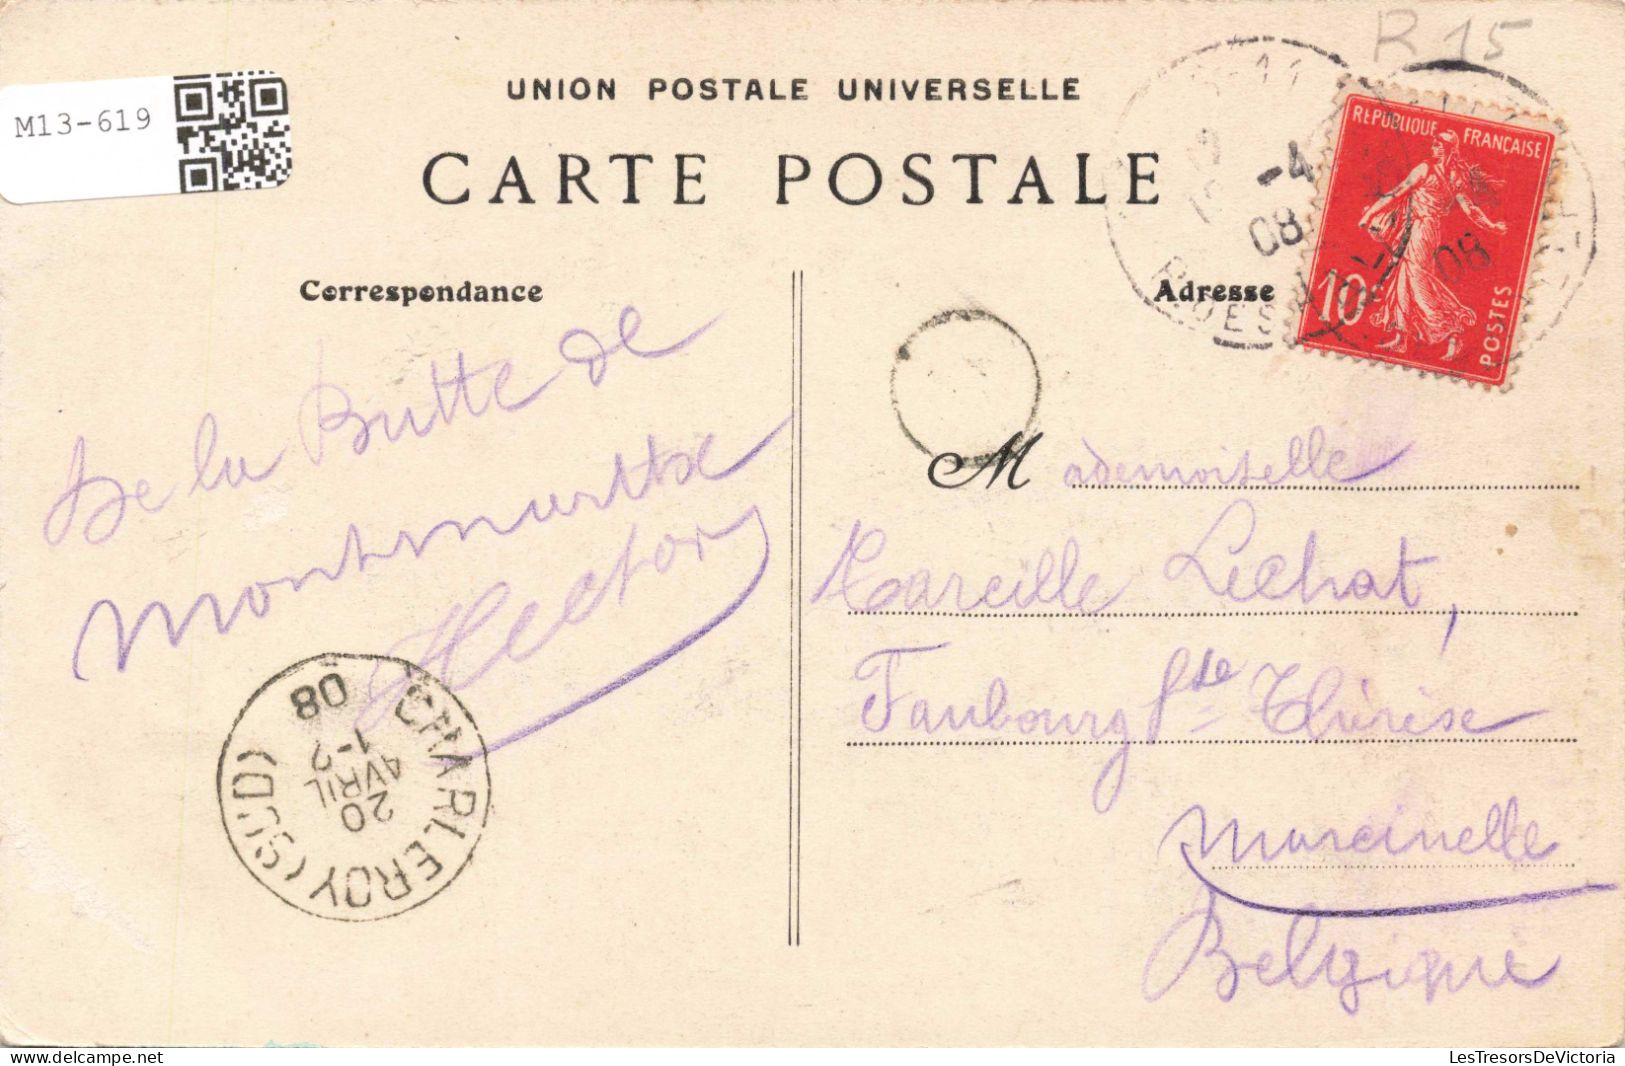 R 15
M13-619
UNION POSTALE UNIVERSELLE
CARTE POSTALE
RÉPUBLIQUE FRANÇAISE
10
POSTES
-4
08
08
Correspondance
Adresse
De la Butte de
Montmartre
Hector
Mademoiselle
Marcelle Lechat,
Faubourg Ste Thérèse
Marcinelle
Belgique
CHARLEROY (SUD)
20
AVRIL
08
LesTresorsDeVictoria